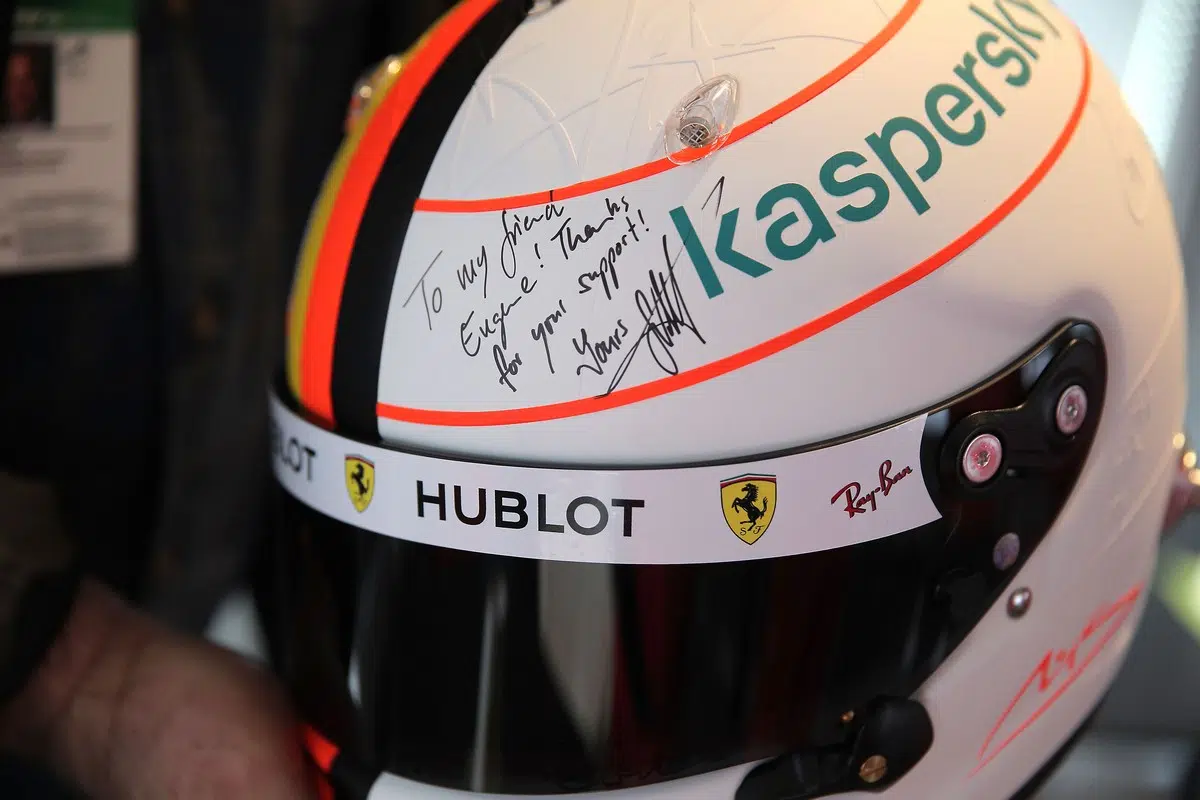 kaspersky
To my friend
Eugene! Thanks
for your support!
Yours
HUBLOT
SF
Ray-Ban